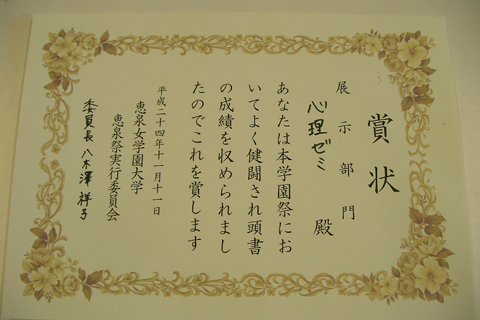 賞状
展示部門
心理ゼミ 殿
あなたは本学園祭にお
いてよく健闘され頭書
の成績を収められまし
たのでこれを賞します
平成二十四年十一月十一日
恵泉女学園大学
恵泉祭実行委員会
委員長 八木澤 祥子